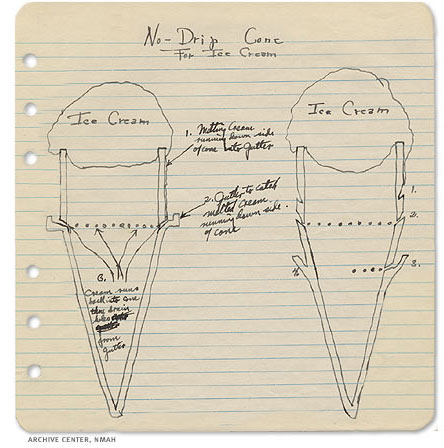 No-Drip Cone
For Ice Cream
Ice Cream
1. Melting Cream
running down side
of cone into gutter
2. Gutter to catch
melted cream
running down side
of cone
3.
Cream runs
back into cone
thru drain
holes
from
gutter
Ice Cream
1.
2.
3.
ARCHIVE CENTER, NMAH